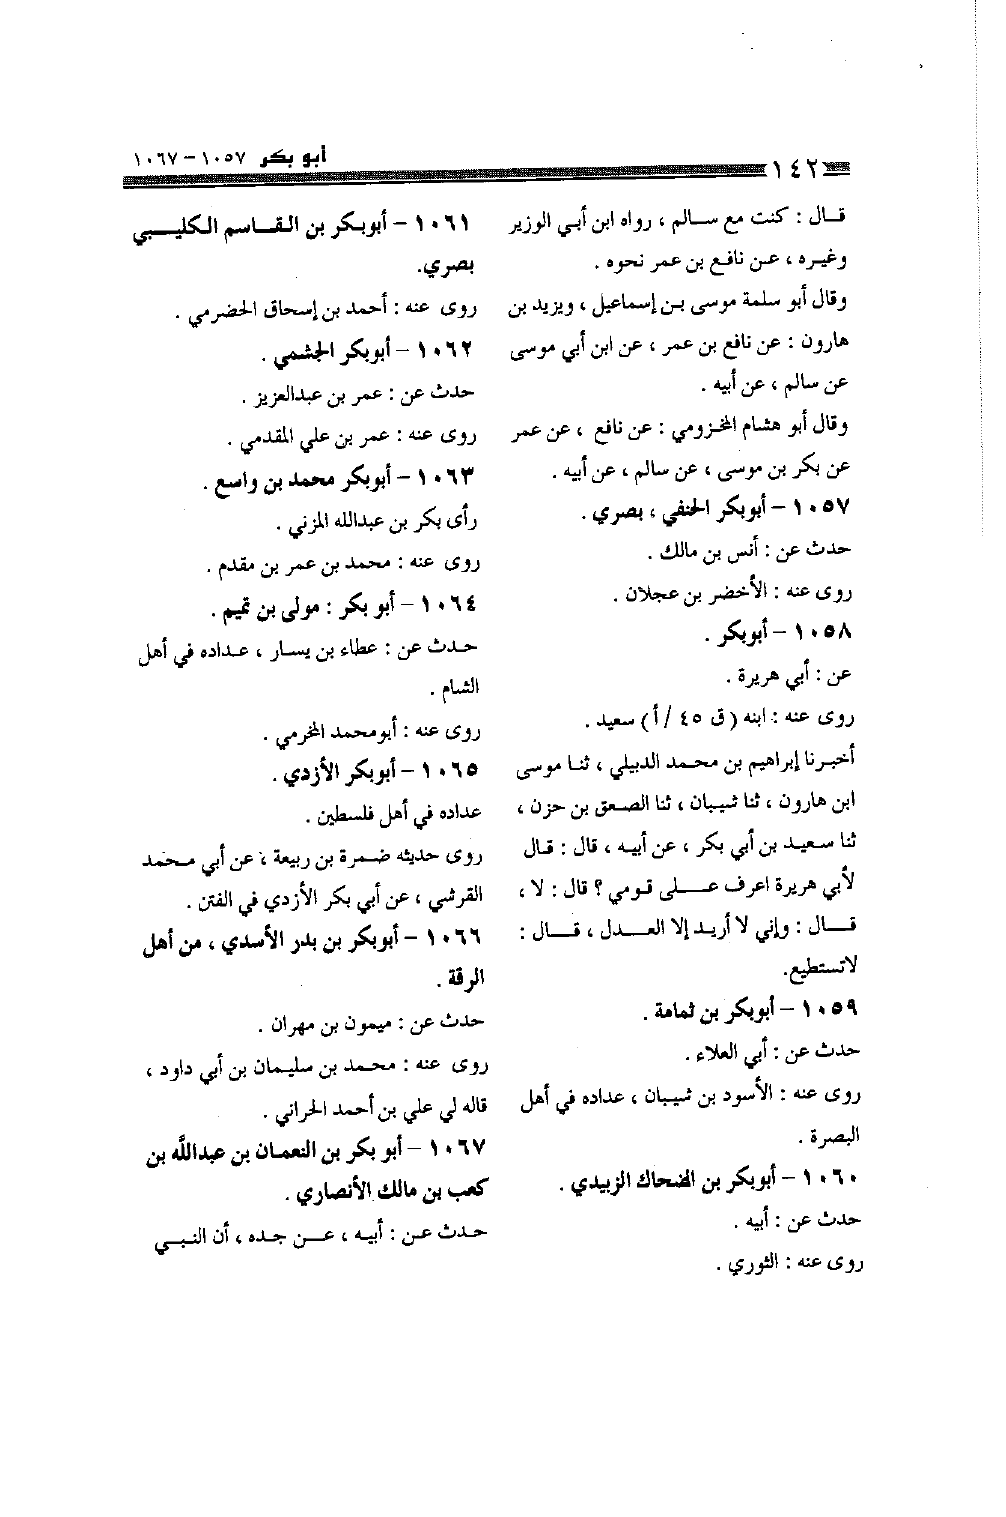 ١٤٢
أبو بكر ١٠٥٧ – ١٠٦٧
قال : كنت مع سالم ، رواه ابن أبي الوزير
وغيره ، عن نافع بن عمر نحوه .
وقال أبو سلمة موسى بن إسماعيل ، ويزيد بن
هارون : عن نافع بن عمر ، عن ابن أبي موسى
عن سالم ، عن أبيه .
وقال أبو هشام المخزومي : عن نافع ، عن عمر
عن بكر بن موسى ، عن سالم ، عن أبيه .
١٠٥٧ – أبوبكر الحنفي ، بصري .
حدث عن : أنس بن مالك .
روى عنه : الأخضر بن عجلان .
١٠٥٨ – أبوبكر .
عن : أبي هريرة .
روى عنه : ابنه (ق ٤٥ /أ) سعيد .
أخبرنا إبراهيم بن محمد الدبيلي ، ثنا موسى
ابن هارون ، ثنا شيبان ، ثنا الصعق بن حزن ،
ثنا سعيد بن أبي بكر ، عن أبيه ، قال : قال
لأبي هريرة اعرف على قومي ؟ قال : لا ،
قال : وإني لا أريد إلا العدل ، قال :
لاتستطيع.
١٠٥٩ – أبوبكر بن ثمامة .
حدث عن : أبي العلاء .
روى عنه : الأسود بن شيبان ، عداده في أهل
البصرة .
١٠٦٠ – أبوبكر بن الضحاك الزبيدي .
حدث عن : أبيه .
روى عنه : الثوري .
١٠٦١ – أبوبكر بن القاسم الكليبي
بصري.
روى عنه : أحمد بن إسحاق الحضرمي .
١٠٦٢ – أبوبكر الجشمي .
حدث عن : عمر بن عبدالعزيز .
روى عنه : عمر بن علي المقدمي .
١٠٦٣ – أبوبكر محمد بن واسع .
رأى بكر بن عبدالله المزني .
روى عنه : محمد بن عمر بن مقدم .
١٠٦٤ – أبو بكر : مولى بن تميم .
حدث عن : عطاء بن يسار ، عداده في أهل
الشام .
روى عنه : أبومحمد المخرمي .
١٠٦٥ – أبوبكر الأزدي .
عداده في أهل فلسطين .
روى حديثه ضمرة بن ربيعة ، عن أبي محمد
القرشي ، عن أبي بكر الأزدي في الفتن .
١٠٦٦ – أبوبكر بن بدر الأسدي ، من أهل
الرقة .
حدث عن : ميمون بن مهران .
روى عنه : محمد بن سليمان بن أبي داود ،
قاله لي علي بن أحمد الحراني .
١٠٦٧ – أبو بكر بن النعمان بن عبدالله بن
كعب بن مالك الأنصاري .
حدث عن : أبيه ، عن جده ، أن النبي